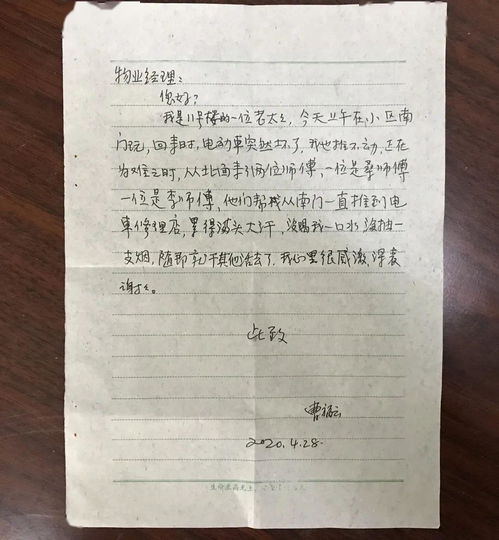 物业经理：
您好？
我是11号楼的一位老太太，今天上午在小区南
门玩，回来时，电动车突然坏了，我也推不动，正在
为难之时，从北面来了两位师傅，一位是桑师傅
一位是李师傅，他们帮我从南门一直推到电
车修理店，累得满头大汗，没喝我一口水没抽一
支烟，随即就干其他活去了，我心里很感激，深表
谢谢。
此致
曹福云
2020.4.28.